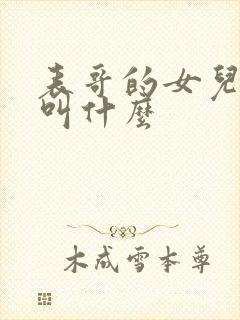 表哥的女兒
叫什麼
木成雪本尊